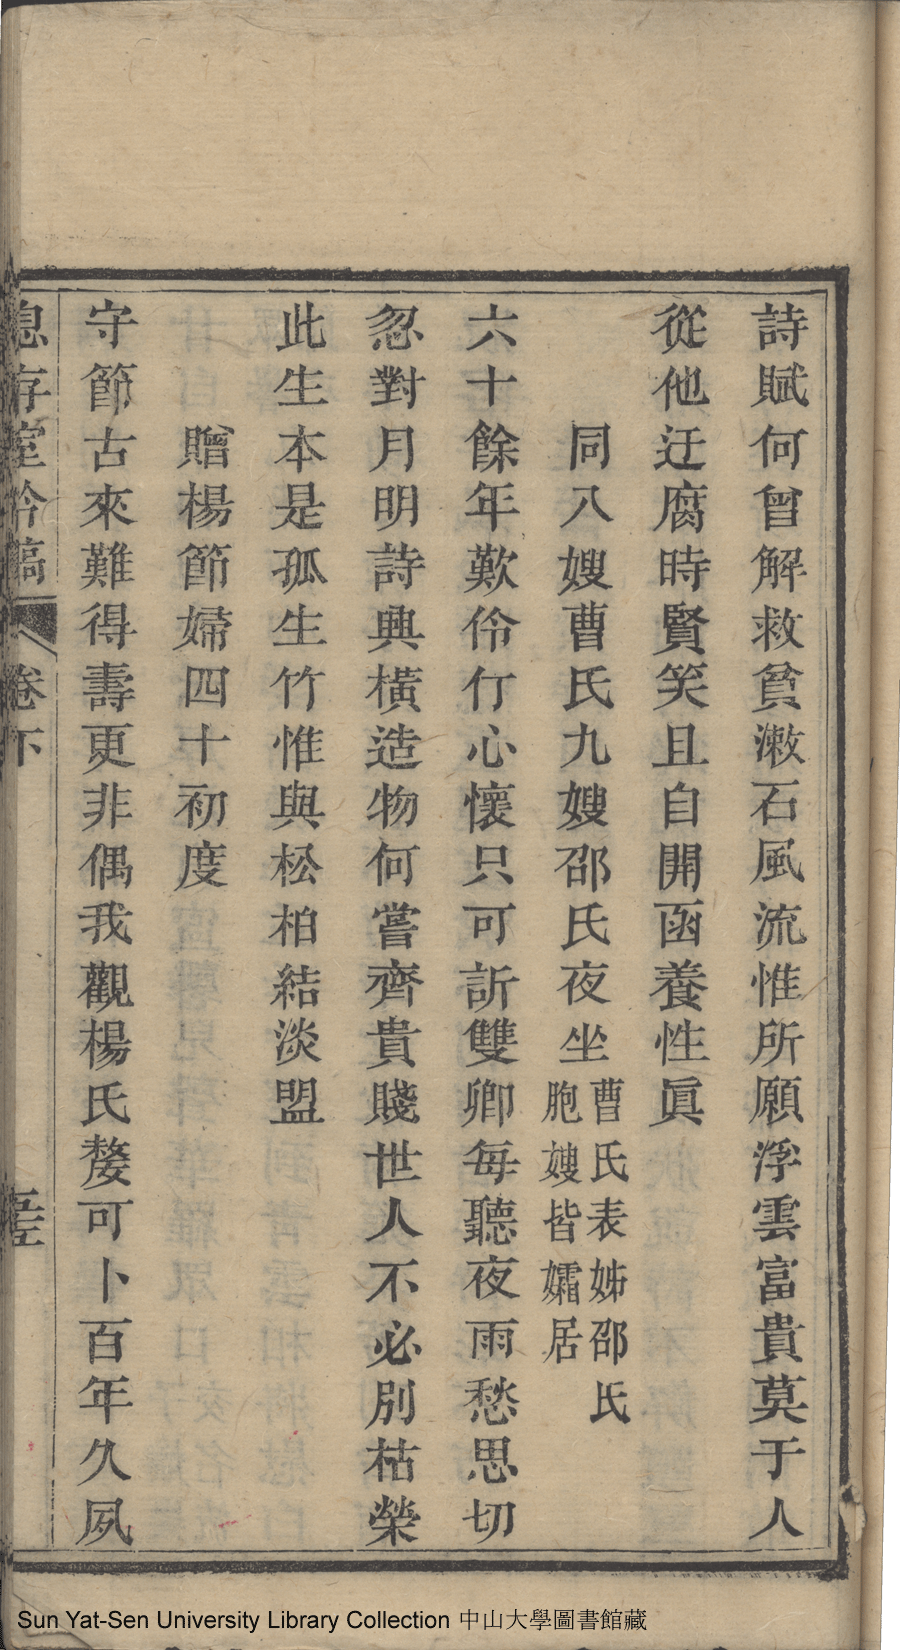 詩賦何曾解救貧漱石風流惟所願浮雲富貴莫于人
從他迂腐時賢笑且自開函養性眞
同八嫂曹氏九嫂邵氏夜坐曹氏表姊邵氏胞嫂皆孀居
六十餘年歎伶仃心懷只可訢雙卿每聽夜雨愁思切
忽對月明詩興橫造物何嘗齊貴賤世人不必別枯榮
此生本是孤生竹惟與松柏結淡盟
贈楊節婦四十初度
守節古來難得壽更非偶我觀楊氏嫠可卜百年久夙
息存室吟稿 卷下
Sun Yat-Sen University Library Collection 中山大學圖書館藏